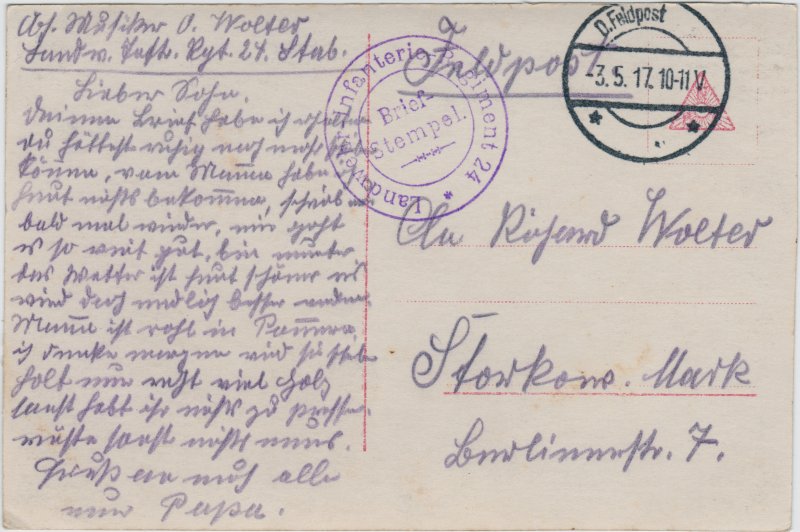 Abs. Musiker O. Wolter
Landw. Inftr. Rgt. 24. Stab.
Lieber Sohn,
deinen Brief habe ich erhalten
du hättest ruhig noch mehr
können, von Mamma habe
heut nichts bekommen, schreib
bald mal wieder, mir geht
es so weit gut, bin munter
das Wetter ist heut schöner es
wird doch endlich besser werden
Mamma ist wohl in Pommern,
ich denke morgen wird sie
holt nur recht viel Holz
sonst habt ihr nichts zu
wüßte sonst nichts neues.
Gruß an euch alle
euer Papa.
Feldpost
Landwehr-Infanterie-Regiment 24 *
Brief-
Stempel.
D. Feldpost
-3.5.17. 10-11 V
* *
An Richard Wolter
Storkow. Mark
Berlinerstr. 7.